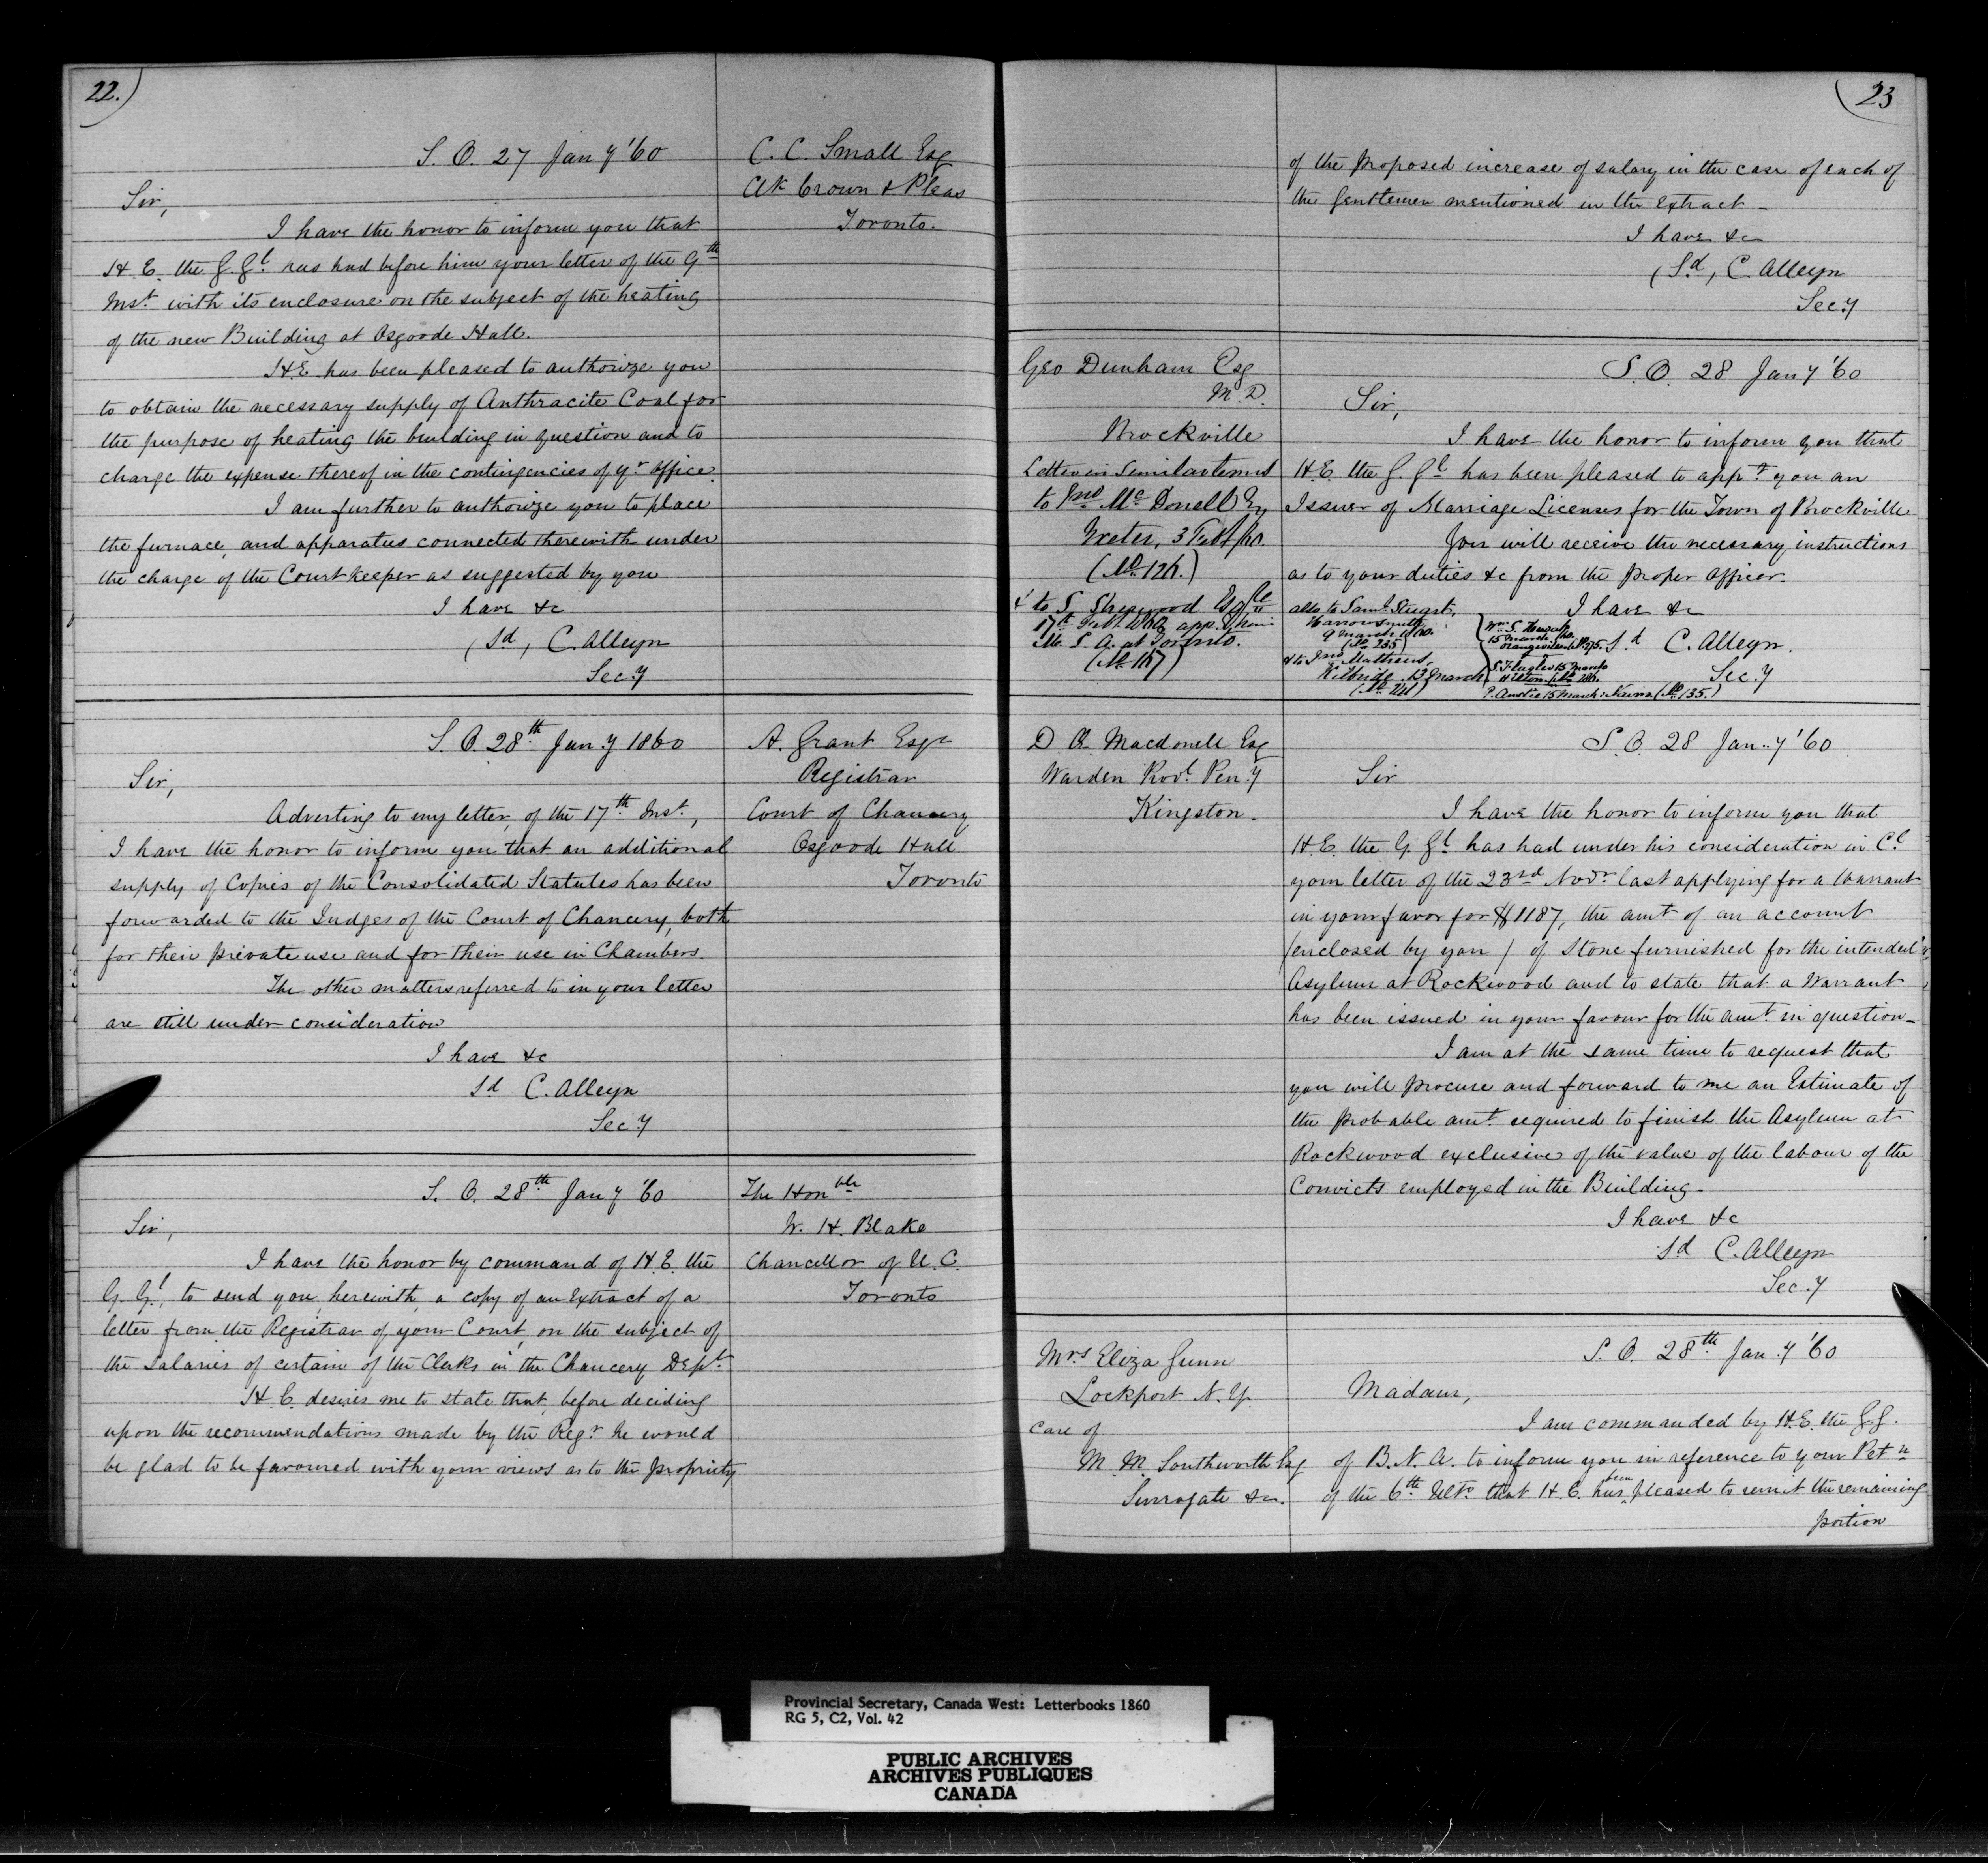 22.)
S. O. 27 Jany '60
C. C. Small Esq
Clk Crown & Pleas
Toronto.
Sir,
I have the honor to inform you that
H. E. the G. Gl. has had before him your letter of the 9th
Inst. with its enclosure on the subject of the heating
of the new Building at Osgoode Hall.
H.E. has been pleased to authorize you
to obtain the necessary supply of Anthracite Coal for
the purpose of heating the building in question and to
charge the expense thereof in the contingencies of yr office.
I am further to authorize you to place
the furnace, and apparatus connected therewith under
the charge of the Court keeper as suggested by you
I have &c
(Sd, C. Alleyn
Secy
S. O. 28th Jany 1860
A. Grant Esqr
Registrar
Court of Chancery
Osgoode Hall
Toronto
Sir,
Adverting to my letter, of the 17th Inst.,
I have the honor to inform you that an additional
supply of Copies of the Consolidated Statutes has been
forwarded to the Judges of the Court of Chancery, both
for their private use and for their use in Chambers.
The other matters referred to in your letter
are still under consideration
I have &c
Sd C. Alleyn
Secy
S. O. 28th Jany '60
The Honble
W. H. Blake
Chancellor of U. C.
Toronto
Sir,
I have the honor by command of H. E. the
G. Gl., to send you herewith, a copy of an Extract of a
letter from the Registrar of your Court, on the subject of
the Salaries of certain of the Clerks in the Chancery Dept.
H. E. desires me to state that, before deciding
upon the recommendations made by the Regr he would
be glad to be favoured with your views as to the propriety
(23
of the proposed increase of salary in the case of each of
the Gentlemen mentioned in the Extract -
I have &c
(Sd, C. Alleyn
Secy
Geo Dunham Esq
M. D.
Brockville
Letter in Similar terms
to Jno. McDonell Esq
Exeter, 3 Feb /60.
(No 126.)
& to S. Sherwood Esqre
17th Feby app.
M. L. at Toronto.
(No 167)
S. O. 28 Jany '60
Sir,
I have the honor to inform you that
H.E. the G. Gl has been pleased to appt. you an
Issuer of Marriage Licenses for the Town of Brockville
You will receive the necessary instructions
as to your duties &c from the proper officer.
I have &c
Sd C. Alleyn.
Secy
also to Saml. Stewart,
Harrowsmith
9 March
(No 235)
& to Jno Mathews,
Kilbride. 13 March
Wm. S.
15 March /60.
Orangeville No 275.
15 March
Hilton.
15 March: (No 135.)
D Æ Macdonell Esq
Warden Provl. Peny
Kingston.
S. O. 28 Jany '60
Sir
I have the honor to inform you that
H.E. the G. Gl has had under his consideration in Cl
your letter of the 23rd Novr last applying for a Warrant
in your favor for $1187, the amt of an account
(enclosed by you) of Stone furnished for the intended
Asylum at Rockwood and to state that a Warrant
has been issued in your favour for the amt. in question -
I am at the same time to request that
you will procure and forward to me an Estimate of
the probable amt. required to finish the Asylum at
Rockwood exclusive of the value of the labour of the
Convicts employed in the Building -
I have &c
Sd C. Alleyn
Secy
Mrs Eliza Gunn
Lockport N. Y.
Care of
M. M. Southworth Esq
Surrogate &c.
S. O. 28th Jany '60
Madam,
I am commanded by H.E. the G. G.
of B. N. A. to inform you in reference to your Petn
of the 6th Ulto. that H. E. has been pleased to remit the remaining
portion
Provincial Secretary, Canada West: Letterbooks 1860
RG 5, C2, Vol. 42
PUBLIC ARCHIVES
ARCHIVES PUBLIQUES
CANADA